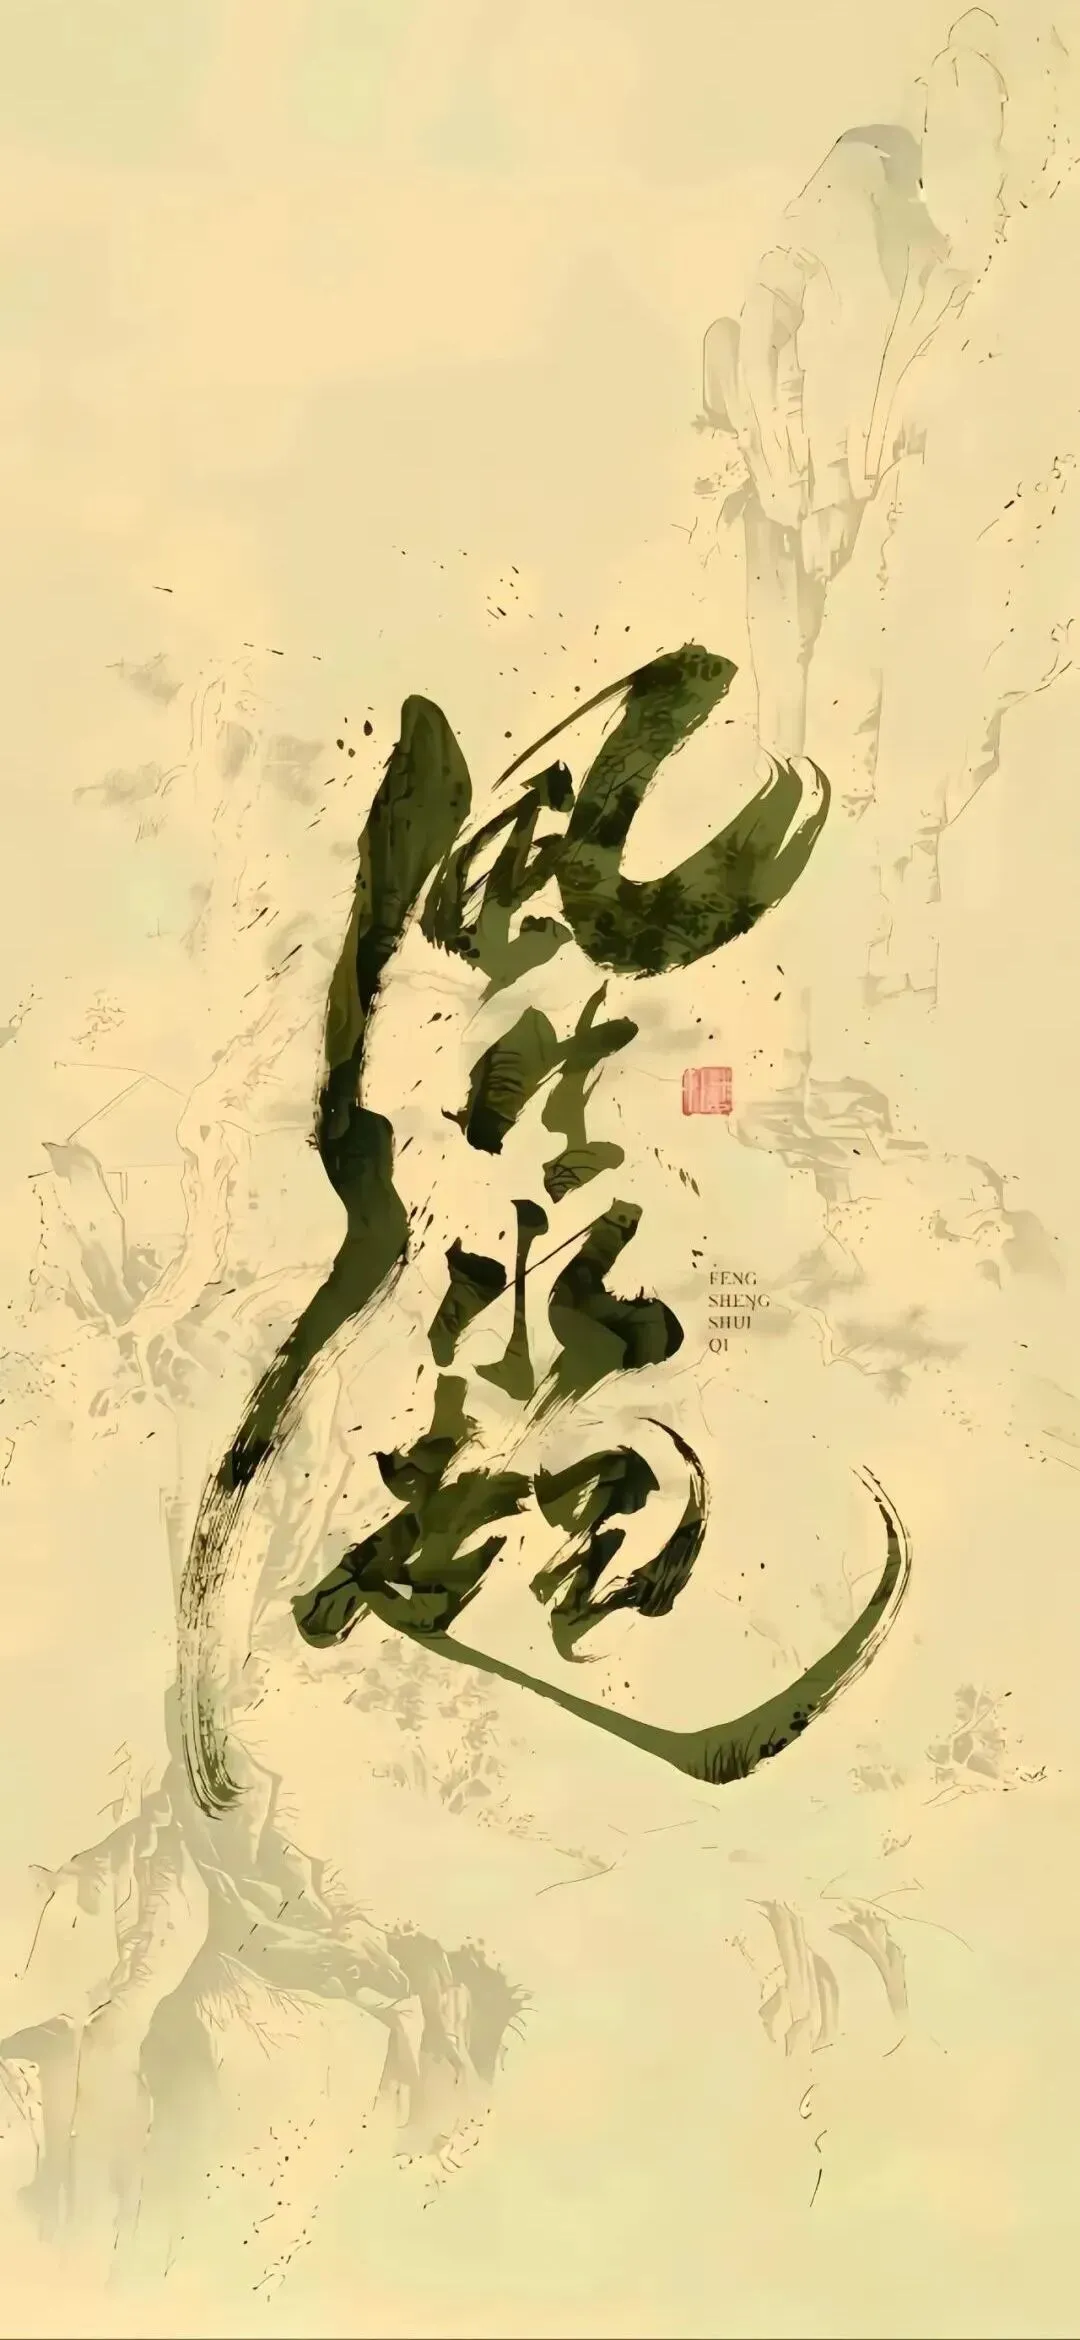 风
生
水
起
FENG
SHENG
SHUI
QI